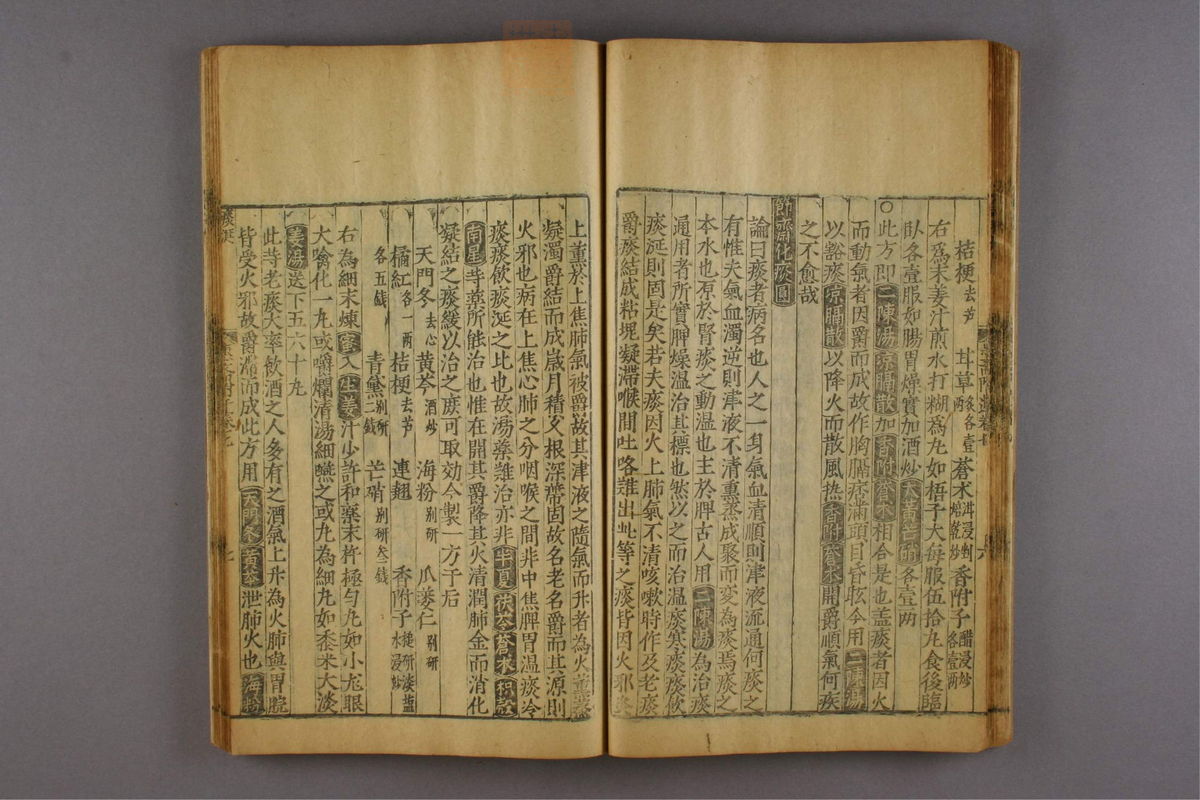 桔梗去芦 甘草炙各壹兩 蒼术泔浸剉焙乾炒 香附子醋浸炒各壹兩
右爲末姜汁煎水打糊爲丸如梧子大每服伍拾丸食後臨
臥各壹服如腸胃燥實加酒炒大黃芒硝各壹两
○此方即二陳湯凉膈散加香附蒼术相合是也盖痰者因火
而動氣者因爵而成故作胸膈痞滿頭目昏眩今用二陳湯
以豁痰凉膈散以降火而散風热香附蒼术開爵順氣何疾
之不愈哉
節齋化痰圓
論曰痰者病名也人之一身氣血清順則津液流通何痰之
有惟夫氣血濁逆則津液不清熏蒸成聚而变為痰焉痰之
本水也原於腎痰之動温也主於脾古人用二陳湯為治痰
通用者所實脾燥温治其標也然以之而治温痰寒痰痰飲
痰涎則固是矣若夫痰因火上肺氣不清咳嗽時作及老痰
爵痰結成粘塊凝滯喉間吐咯難出此等之痰皆因火邪炎
上熏於上焦肺氣被爵故其津液之隨氣而升者為火熏蒸
凝濁爵結而成歲月積久根深蒂固故名老名爵而其源則
火邪也病在上焦心肺之分咽喉之間非中焦脾胃温痰冷
痰痰飲痰涎之比也故湯藥難治亦非半夏茯苓蒼术枳殼
南星等藥所能治也惟在開其爵降其火清潤肺金而消化
凝結之痰緩以治之庶可取効今製一方于后
天門冬去心 黃芩酒炒 海粉别研 瓜蔞仁别研
橘紅各一兩 桔梗去芦 連翹 香附子搥研淡盐水浸炒
各五錢 青黛别研二錢 芒硝别研叁錢
右為細末煉蜜入生姜汁少許和藥末杵極匀丸如小龙眼
大噙化一丸或嚼爛清湯細嚥之或丸為細丸如黍米大淡
姜湯送下五六十丸
此等老痰大率飲酒之人多有之酒氣上升為火肺與胃脘
皆受火邪故爵滯而成此方用天門冬黃芩泄肺火也海粉